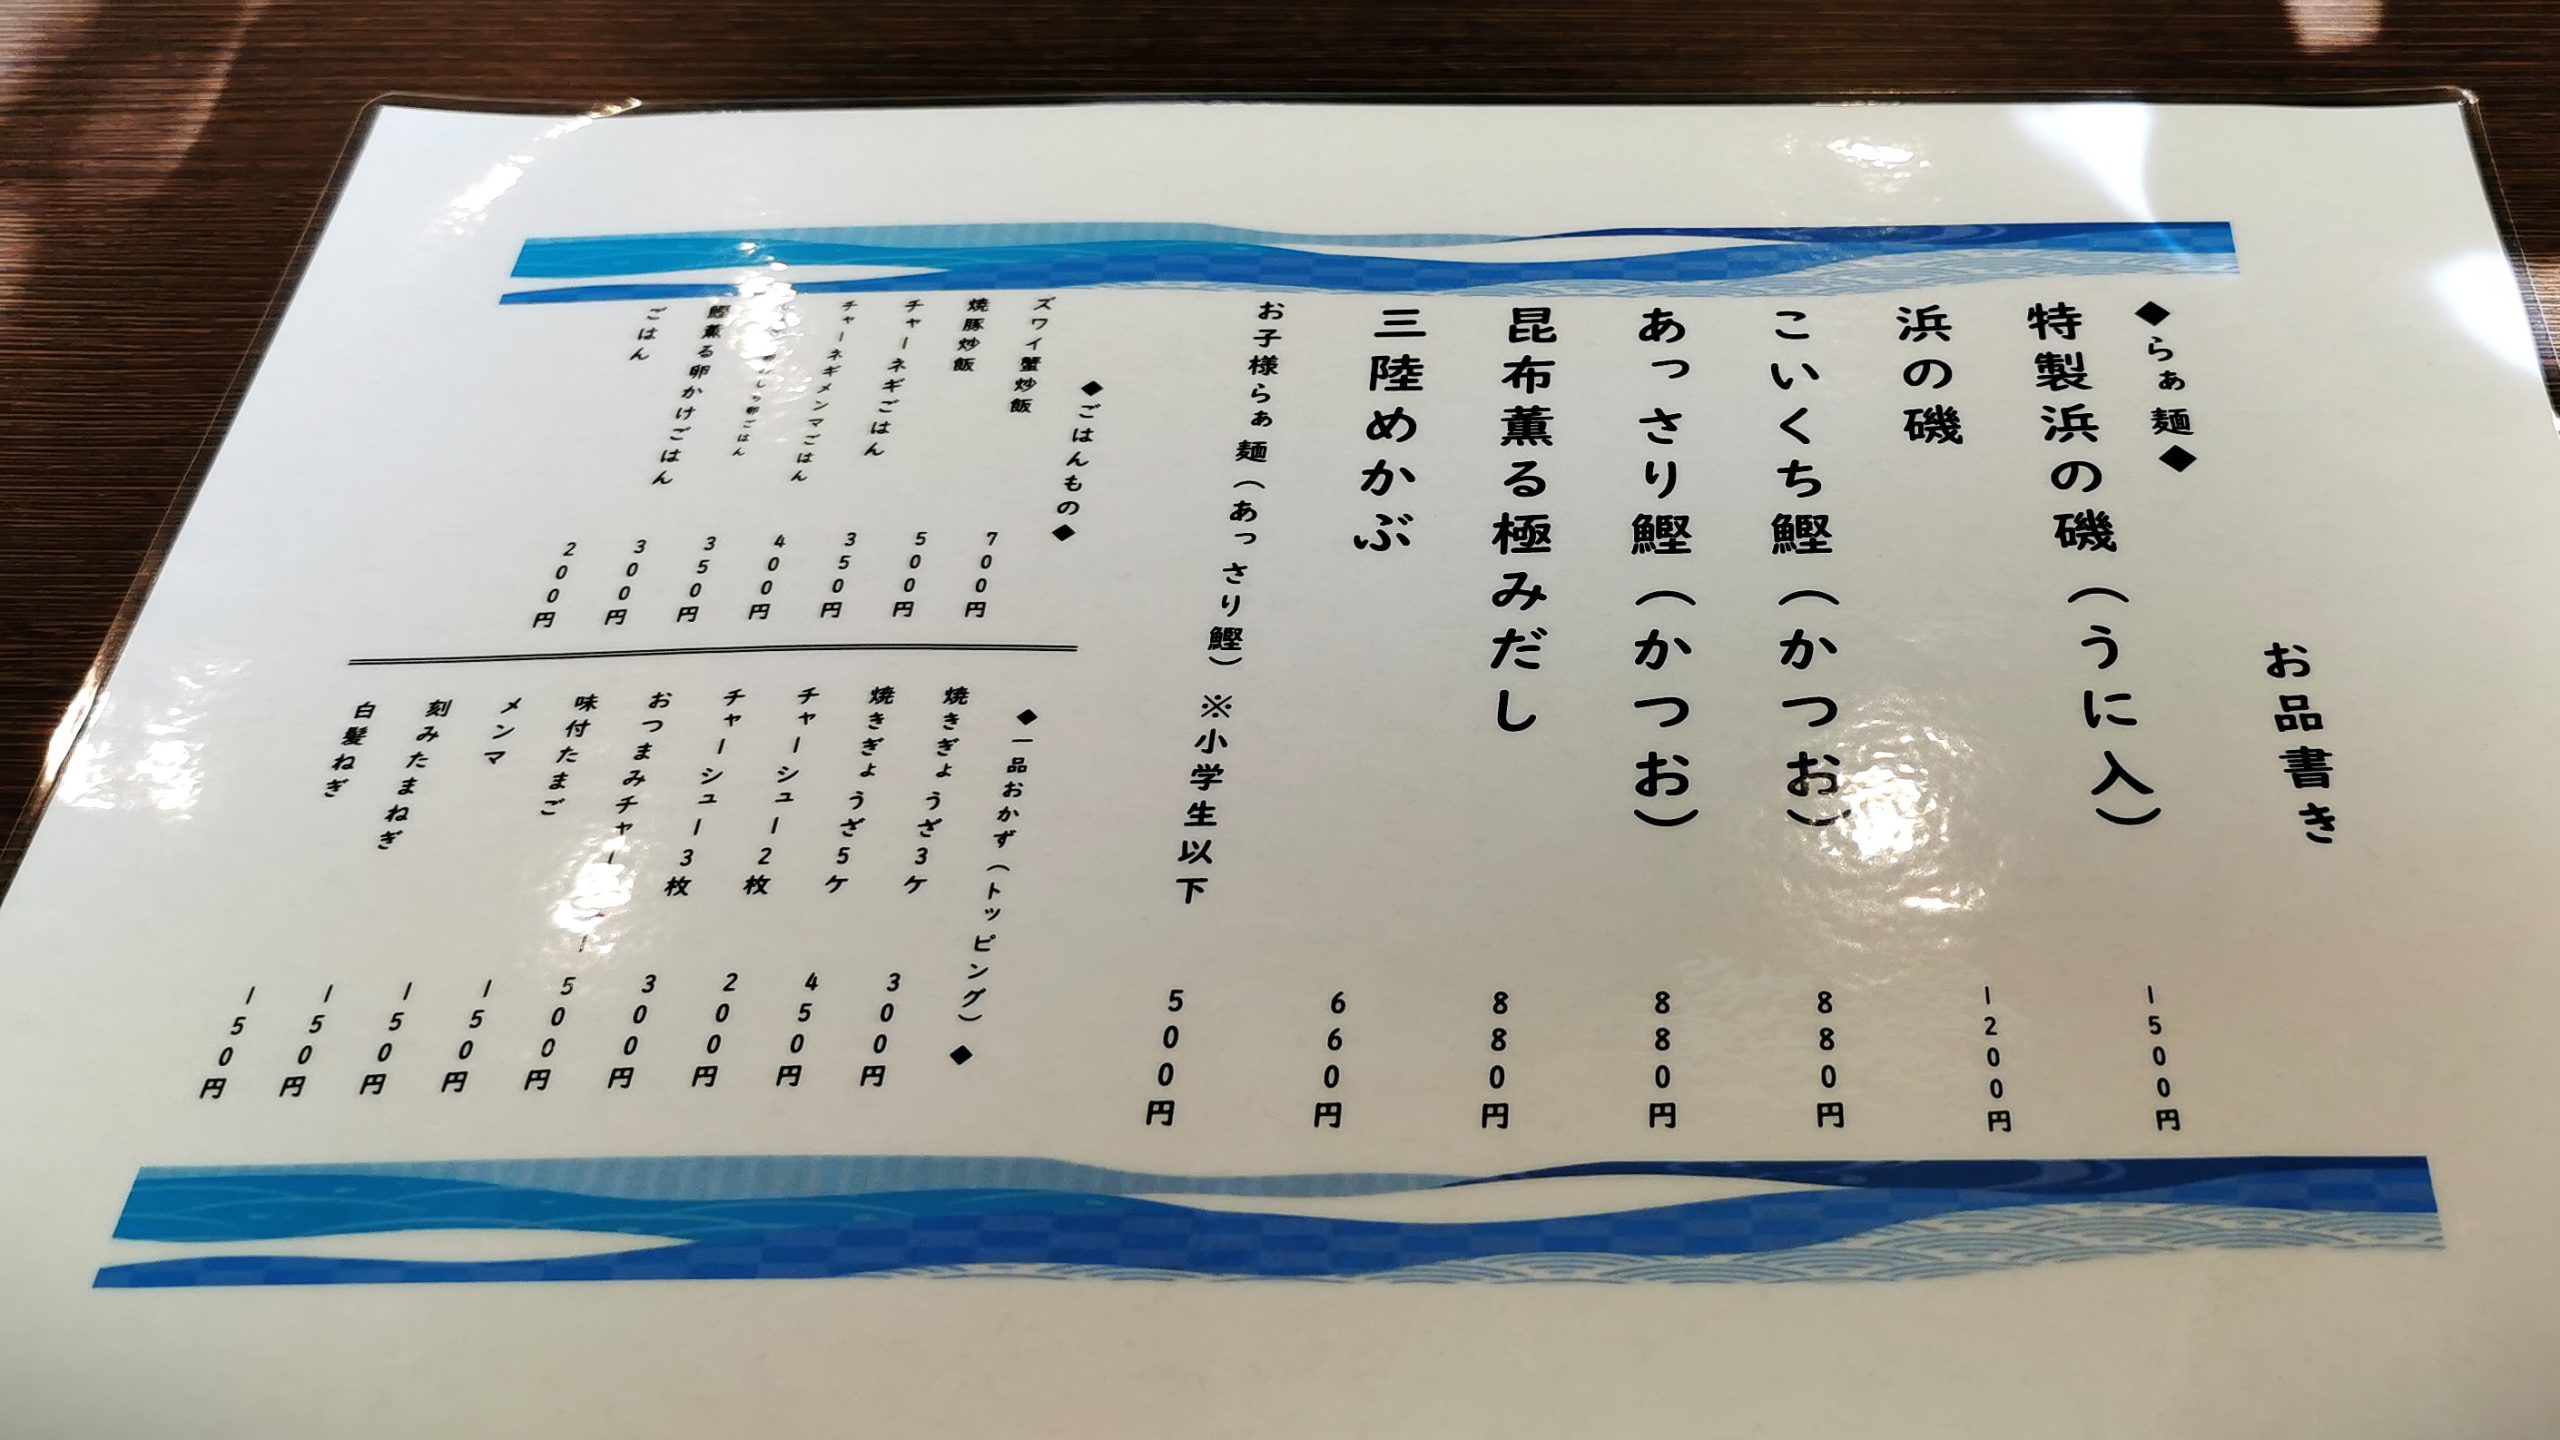 お品書き
◆らぁ麺◆
特製浜の磯(うに入) 1500円
浜の磯 1200円
こいくち鰹(かつお) 880円
あっさり鰹(かつお) 880円
昆布薫る極みだし 880円
三陸めかぶ 660円
お子様らぁ麺(あっさり鰹)※小学生以下 500円
◆ごはんもの◆
ズワイ蟹炒飯 700円
焼豚炒飯 500円
チャーネギごはん 350円
チャーネギメンマごはん 400円
卵ごはん 350円
鰹薫る卵かけごはん 300円
ごはん 200円
◆一品おかず(トッピング)◆
焼きぎょうざ3ケ 300円
焼きぎょうざ5ケ 450円
チャーシュー2枚 200円
チャーシュー3枚 300円
おつまみチャーシュー 500円
味付たまご 150円
メンマ 150円
刻みたまねぎ 150円
白髪ねぎ 150円